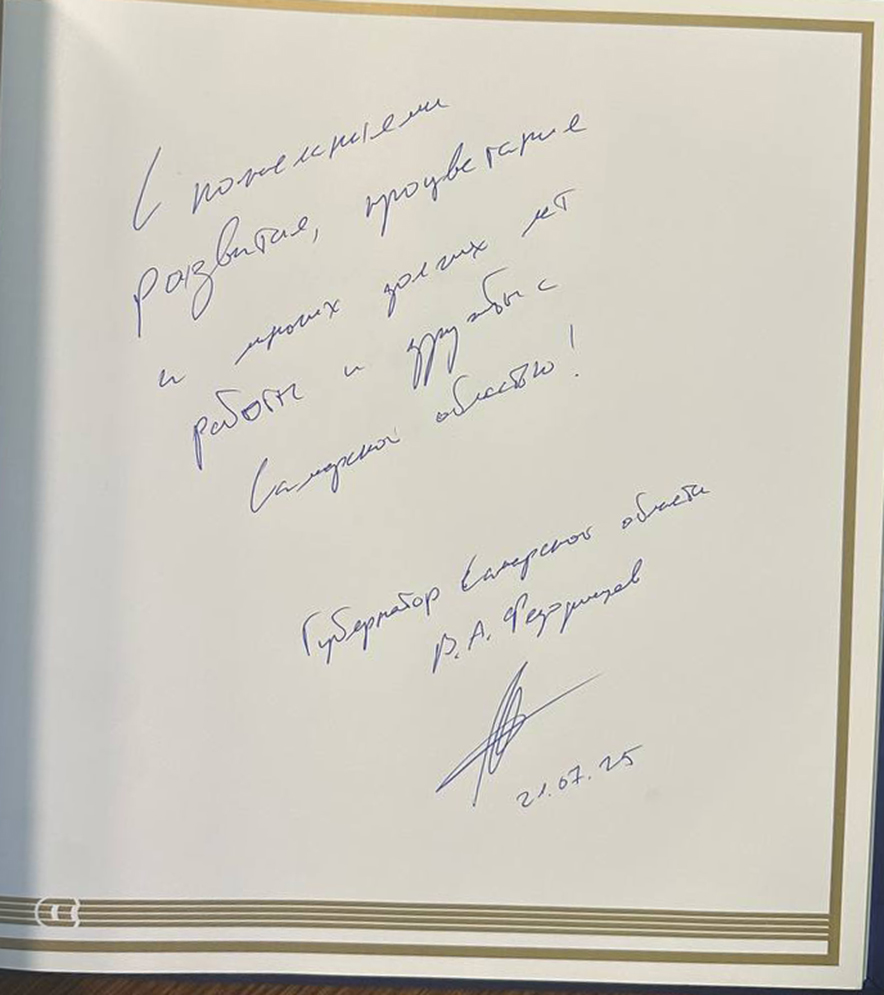 С пожеланием
развития, процветания
и многих долгих лет
работы и дружбы с
Самарской областью!
Губернатор Самарской области
В.А. Федорищев
21.07.25